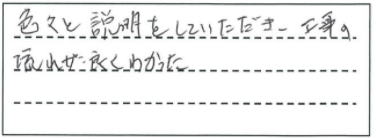 色々と説明をしていただき 工事の
流れが良くわかった